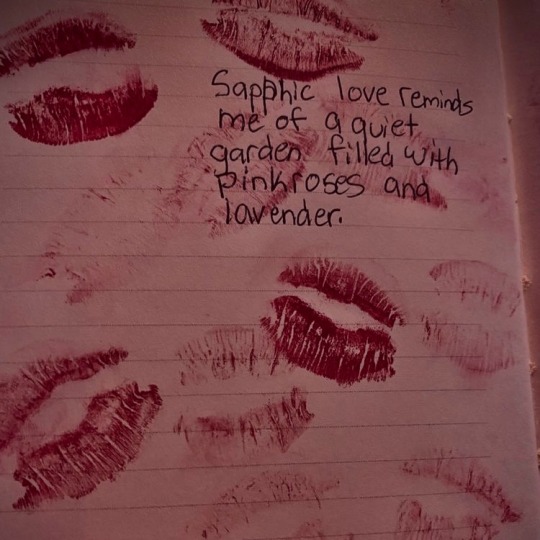 Sapphic love reminds
me of a quiet
garden filled with
pink roses and
lavender.